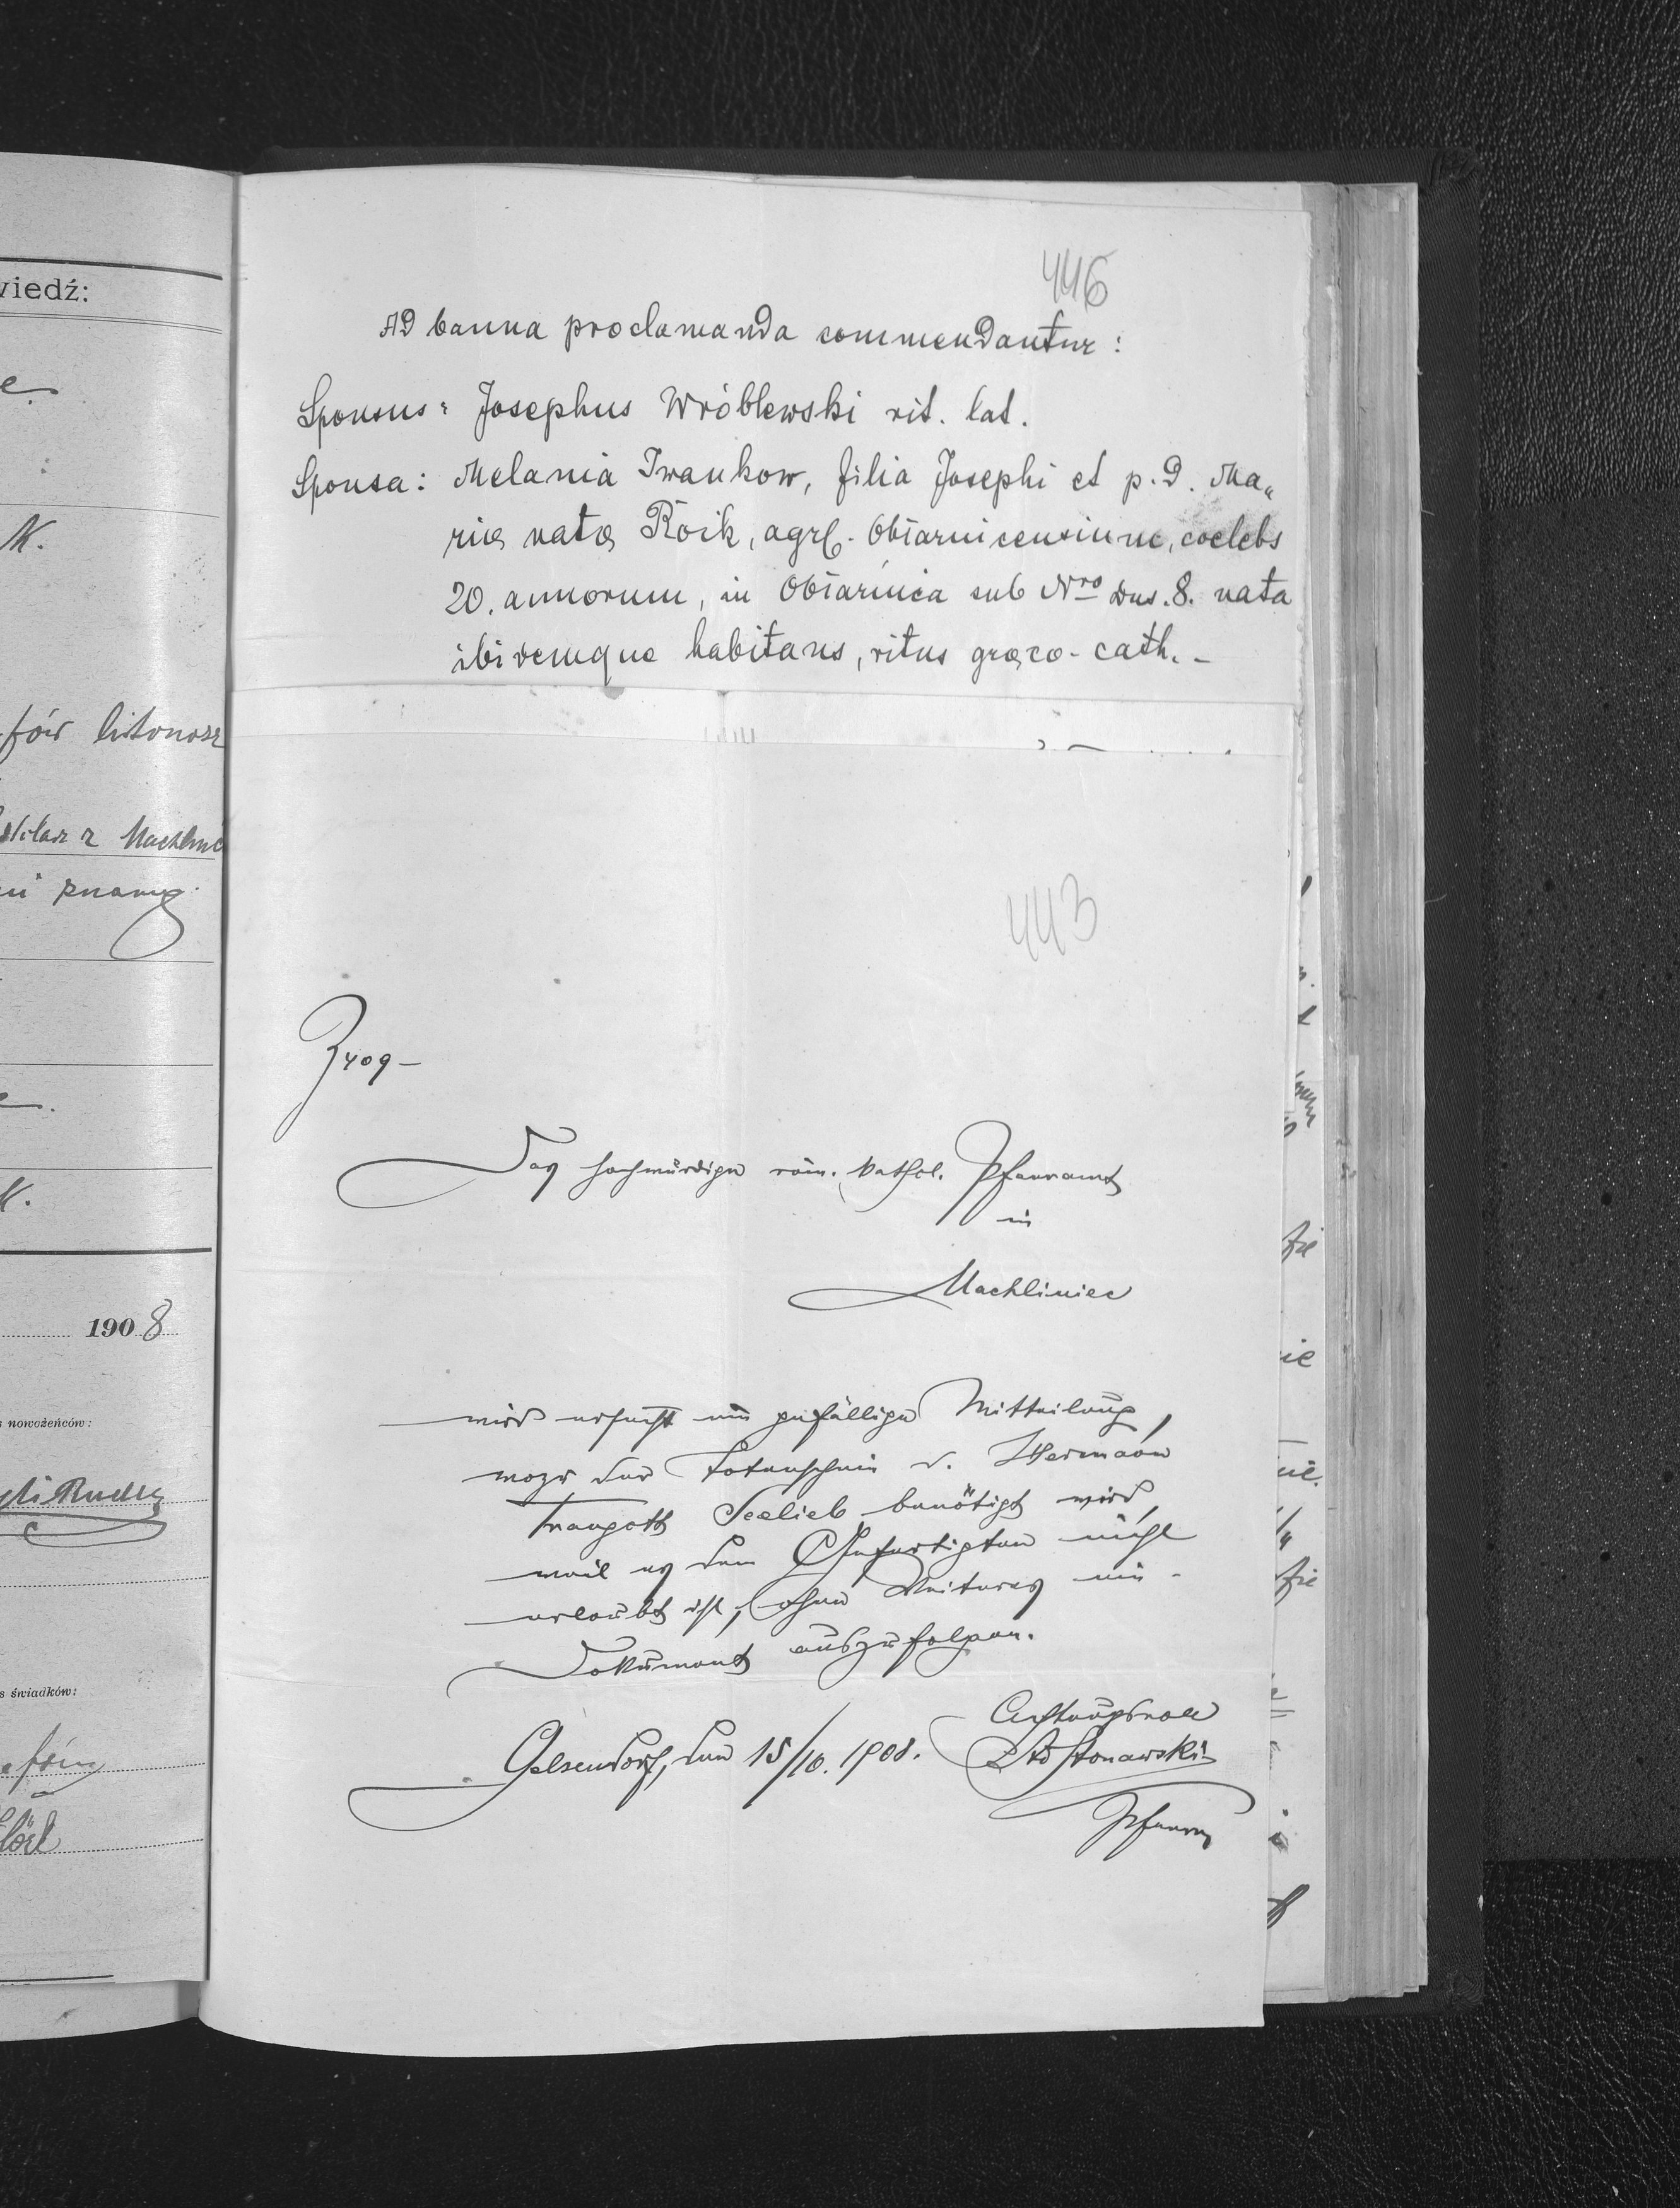 wiedź:
M.
fów listonosz
z Machliniec
znany
190 8
nowożeńców:
s świadków:
446
AD banna proclamanda commendantur:
Sponsus: Josephus Wróblewski rit. lat.
Sponsa: Melania Iwankow, filia Josephi et p. d. Ma„
riæ natæ Roik, agrc. Obłarnicensium, coelebs
20. annorum, in Obłarnica sub Nro dus. 8. nata
ibidemque habitans, ritus græco-cath. -
443
Z 409 -
Das hochwürdige röm. kathol. Pfarramt
in
Machliniec
wird ersucht um gefällige Mitteilung,
wozu der Totenschein d. Hermann
Traugott Seelieb benötigt wird,
weil es dem Gefertigten nicht
erlaubt ist, ohne Weiteres ein
Dokument auszufolgen.
Achtungsvoll
Gelsendorf, den 15/10. 1908.
Stonawski
Pfarrer